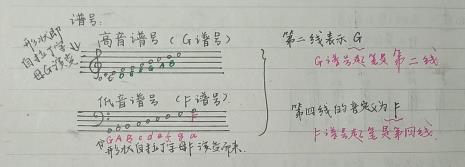 谱号:
形状即
自拉丁字
母G演变
高音谱号(G谱号)
低音谱号(F谱号)
G A B c d e f g a
形状自拉丁字母F演变而来.
第二线表示G
G谱号起笔是第二线
第四线的音定义为F
F谱号起笔是第四线